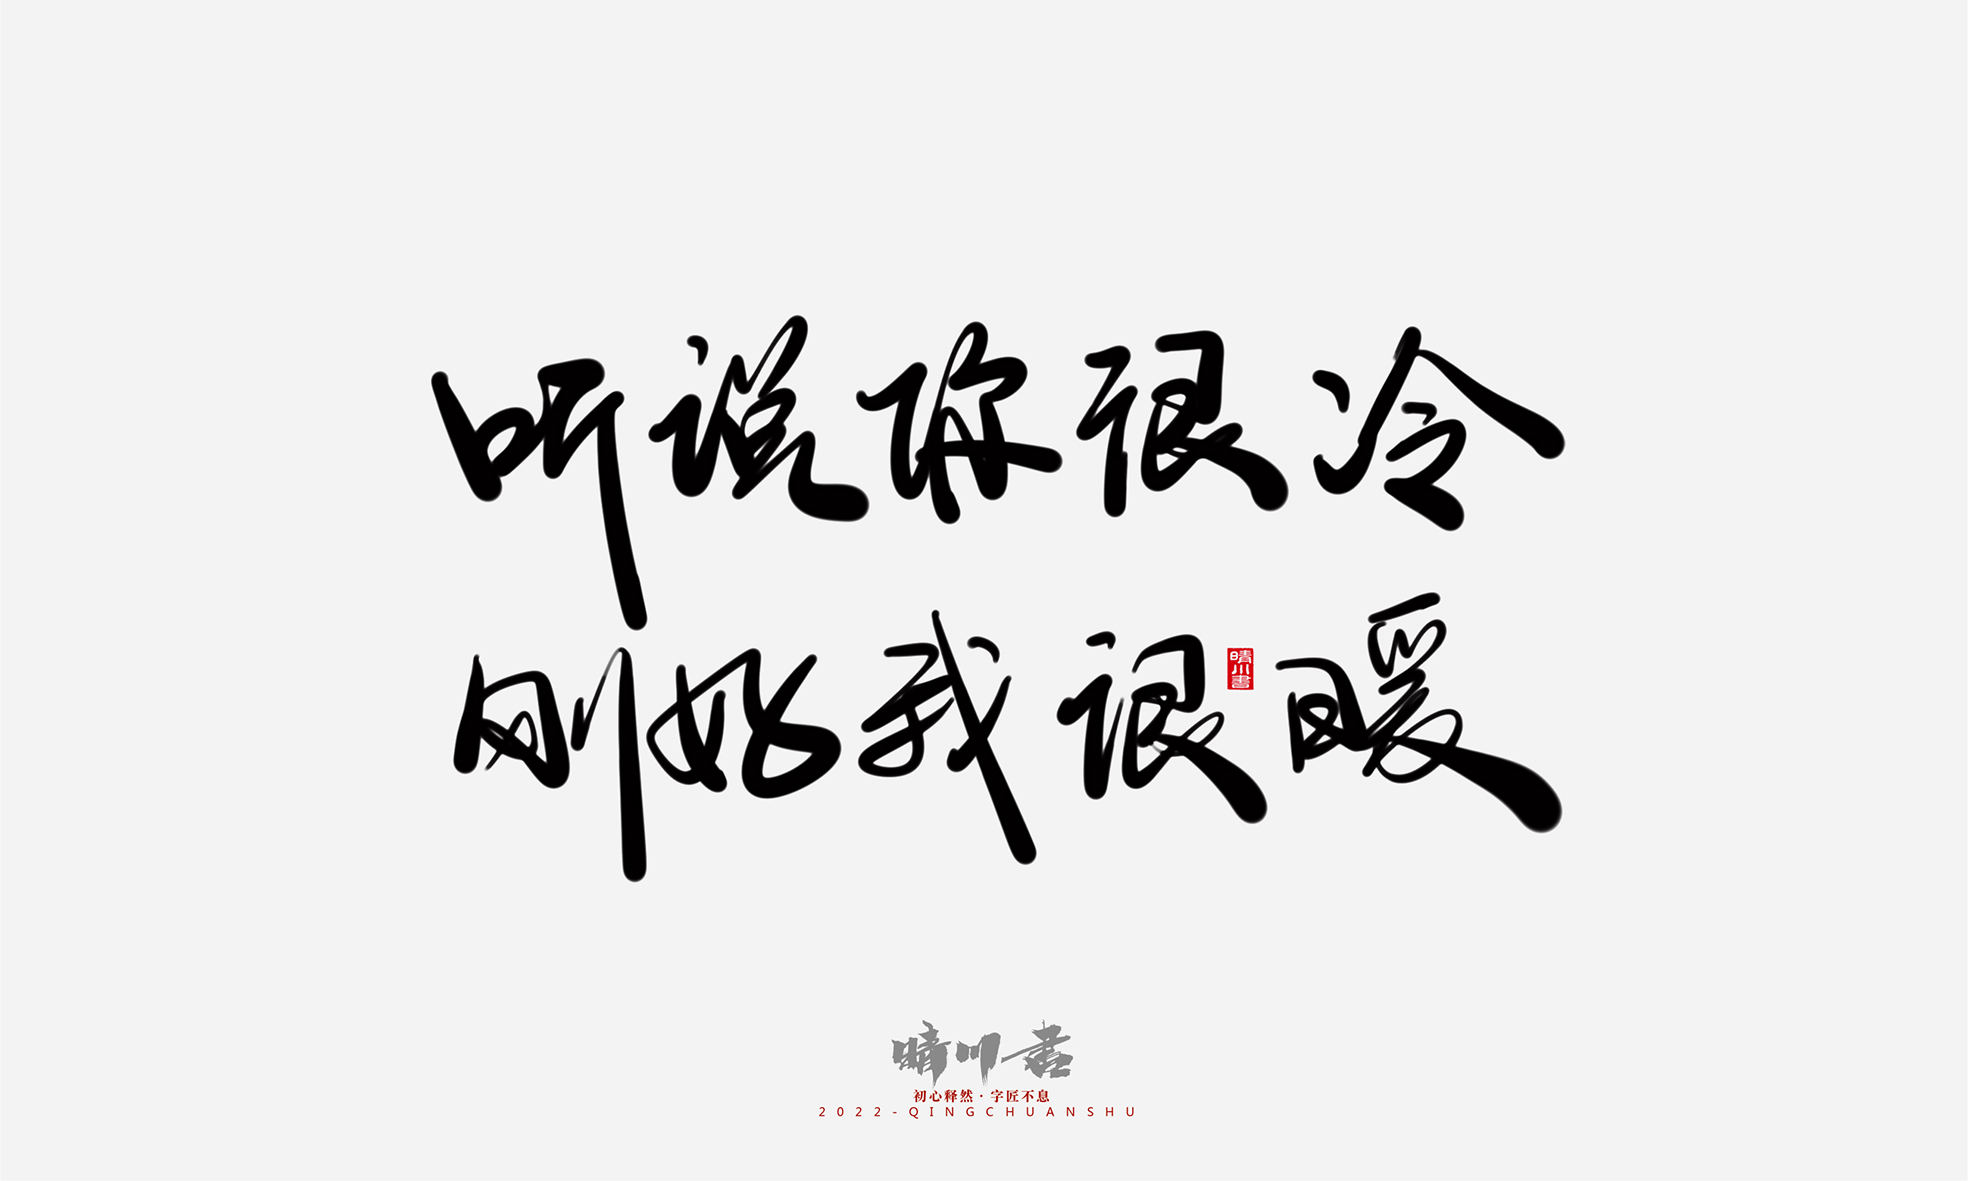 听说你很冷
刚好我很暖
晴川書
晴川书
初心释然·字匠不息
2022-QINGCHUANSHU